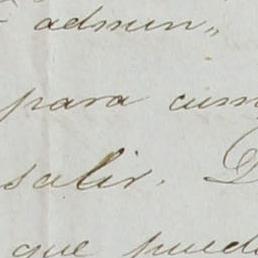 admin„
para cum
salir. D
que puede